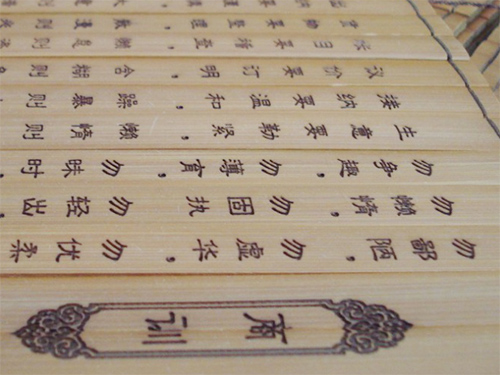 商训
勿鄙陋，勿虚华，勿优柔
勿懒惰，勿固执，勿轻出
勿争趣，勿薄育，勿昧时
生意要勤紧，懒惰则
接纳要温和，躁暴则
议价要订明，含糊则
目要稽查，懒怠则
要整理，散漫则